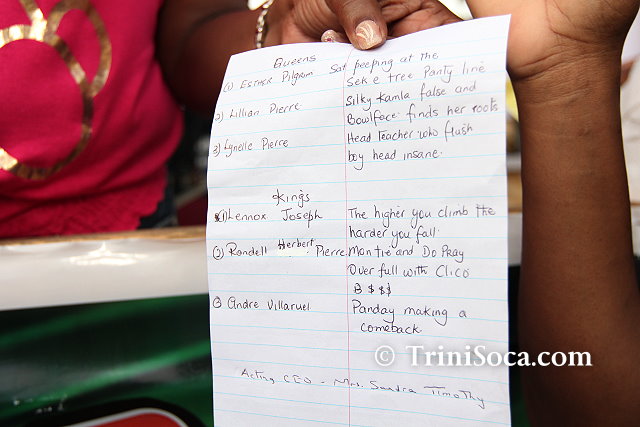 Queens
(1) ESTHER Pilgrim Sat peeping at the
Seke tree Panty line
2) Lillian Pierre Silky Kamla false and
Bowlface finds her roots
3) Lynelle Pierre Head Teacher who flush
boy head insane.
Kings
(1) Lennox Joseph The higher you climb the
harder you fall.
2) Rondell Herbert Pierre. Mantie and Do Pray
Over full with Clico
B $ $ $
3) Andre Villaruel Panday making a
comeback
Acting CEO - Mrs. Sandra Timothy
© TriniSoca.com